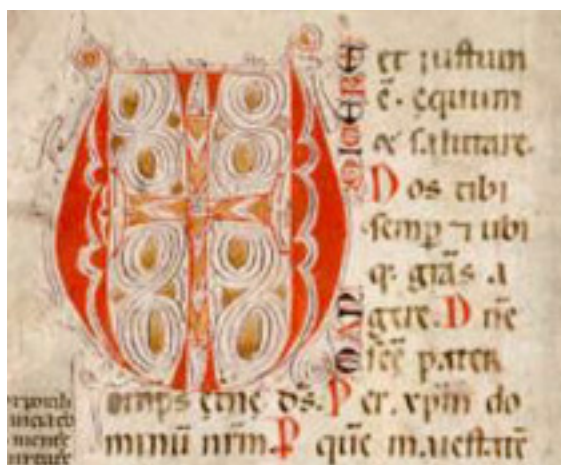 et iustum
ē. ęquum
& salutare.
Nos tibi
semp̄ ⁊ ubi
q; grās a
gere. D nē
sc̄e pater
omps ętne ds̄. P er. xp̄m do
minū nr̄m. P quē maiestatē